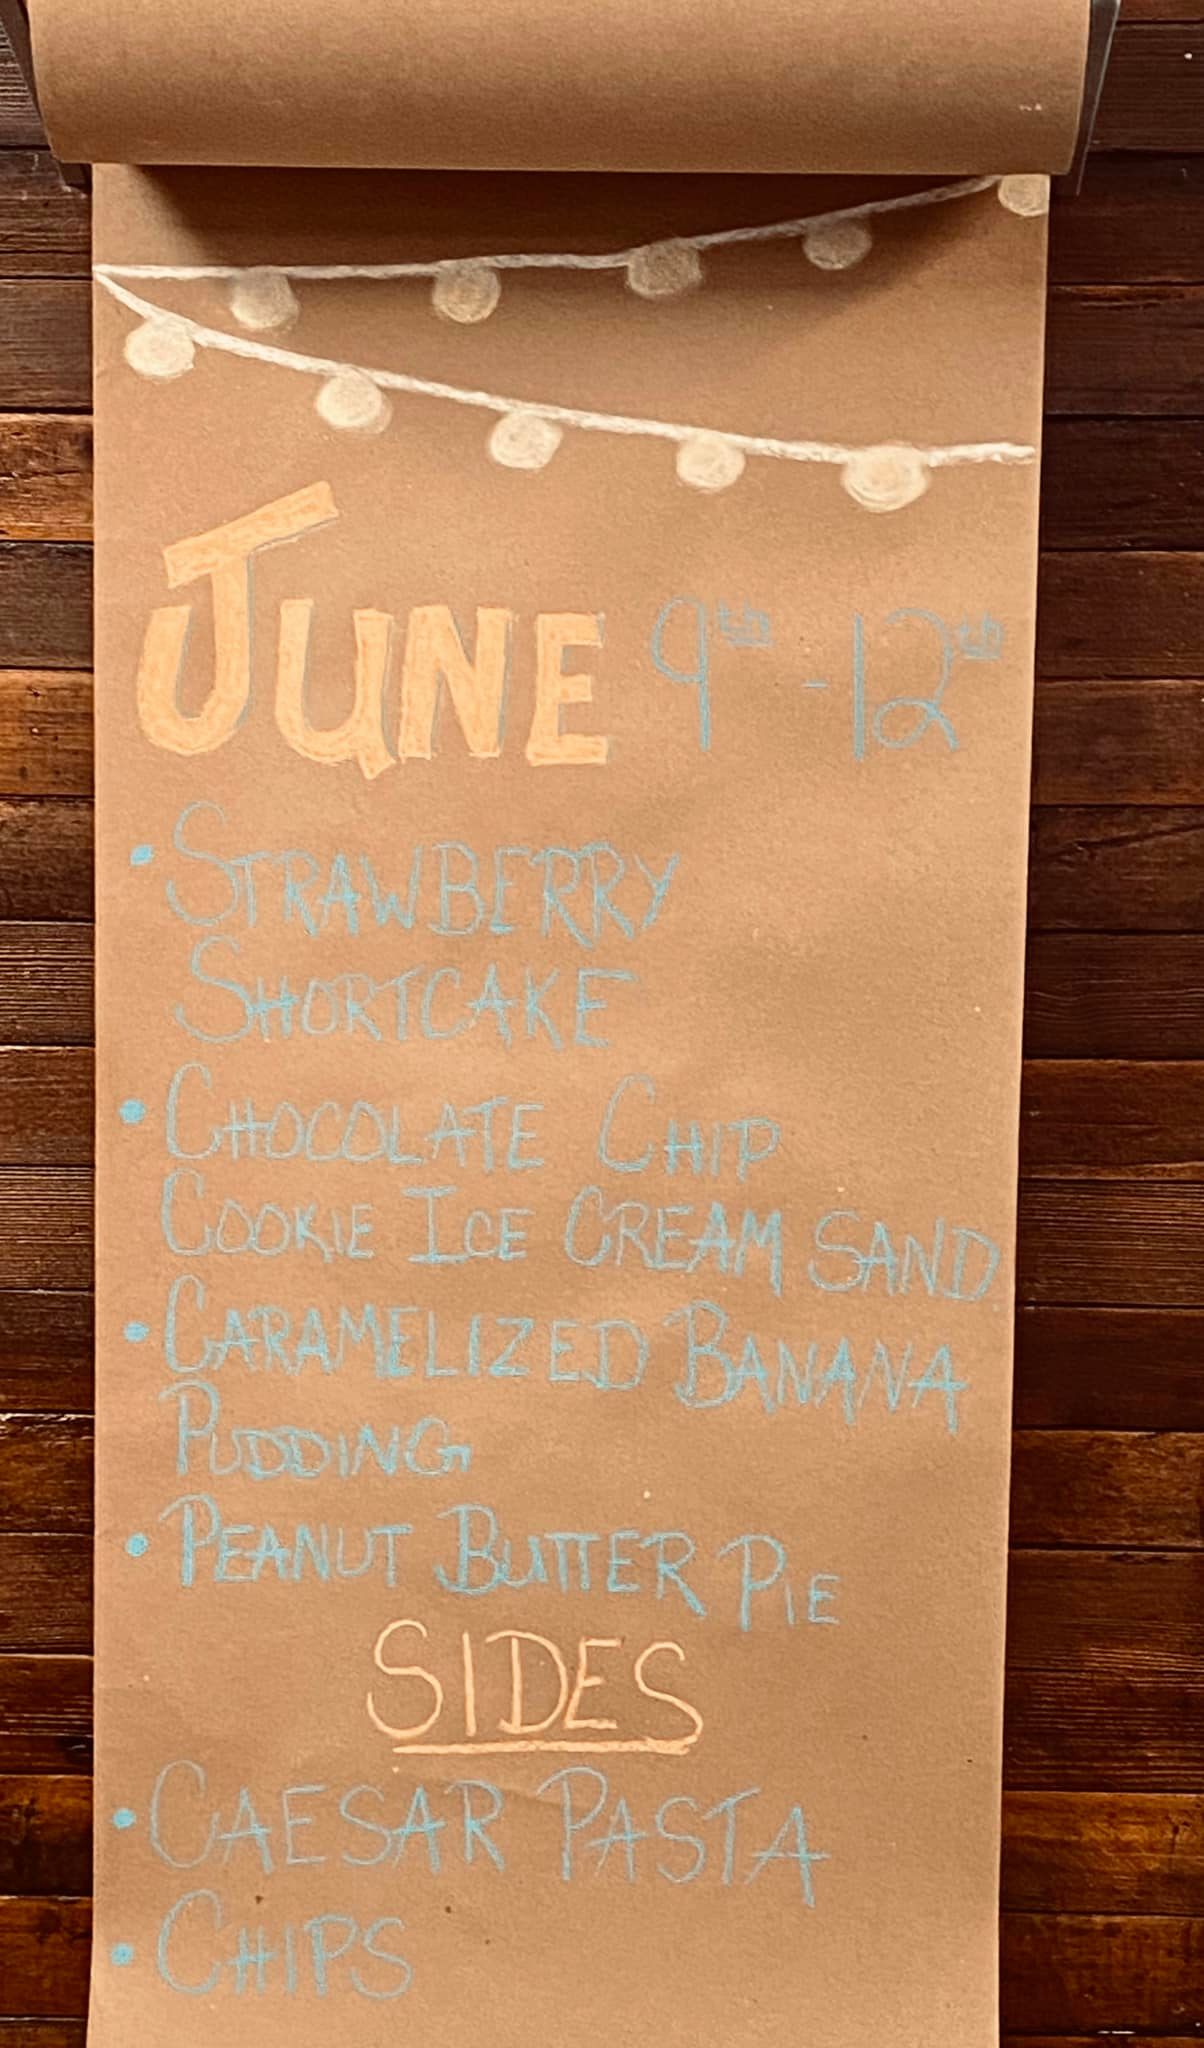 JUNE 9th - 12th
• STRAWBERRY
SHORTCAKE
• CHOCOLATE CHIP
COOKIE ICE CREAM SAND.
• CARAMELIZED BANANA
PUDDING
• PEANUT BUTTER PIE
SIDES
• CAESAR PASTA
• CHIPS